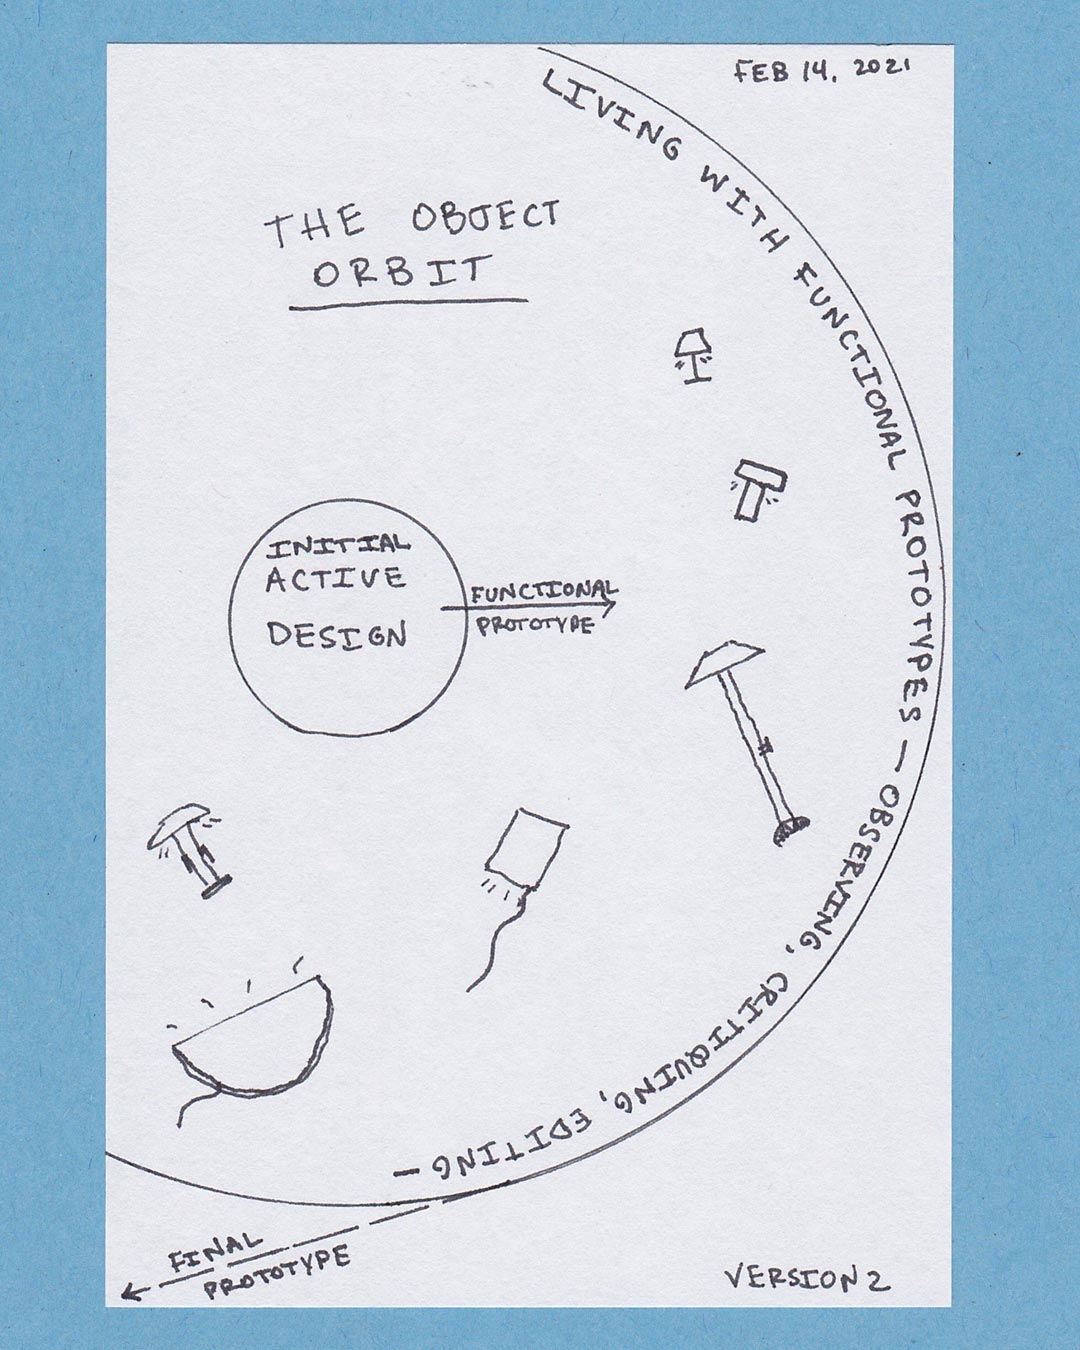 FEB 14, 2021
THE OBJECT
ORBIT
LIVING WITH FUNCTIONAL PROTOTYPES — OBSERVING, CRITIQUING, EDITING —
INITIAL
ACTIVE
DESIGN
FUNCTIONAL
PROTOTYPE
FINAL
PROTOTYPE
VERSION 2